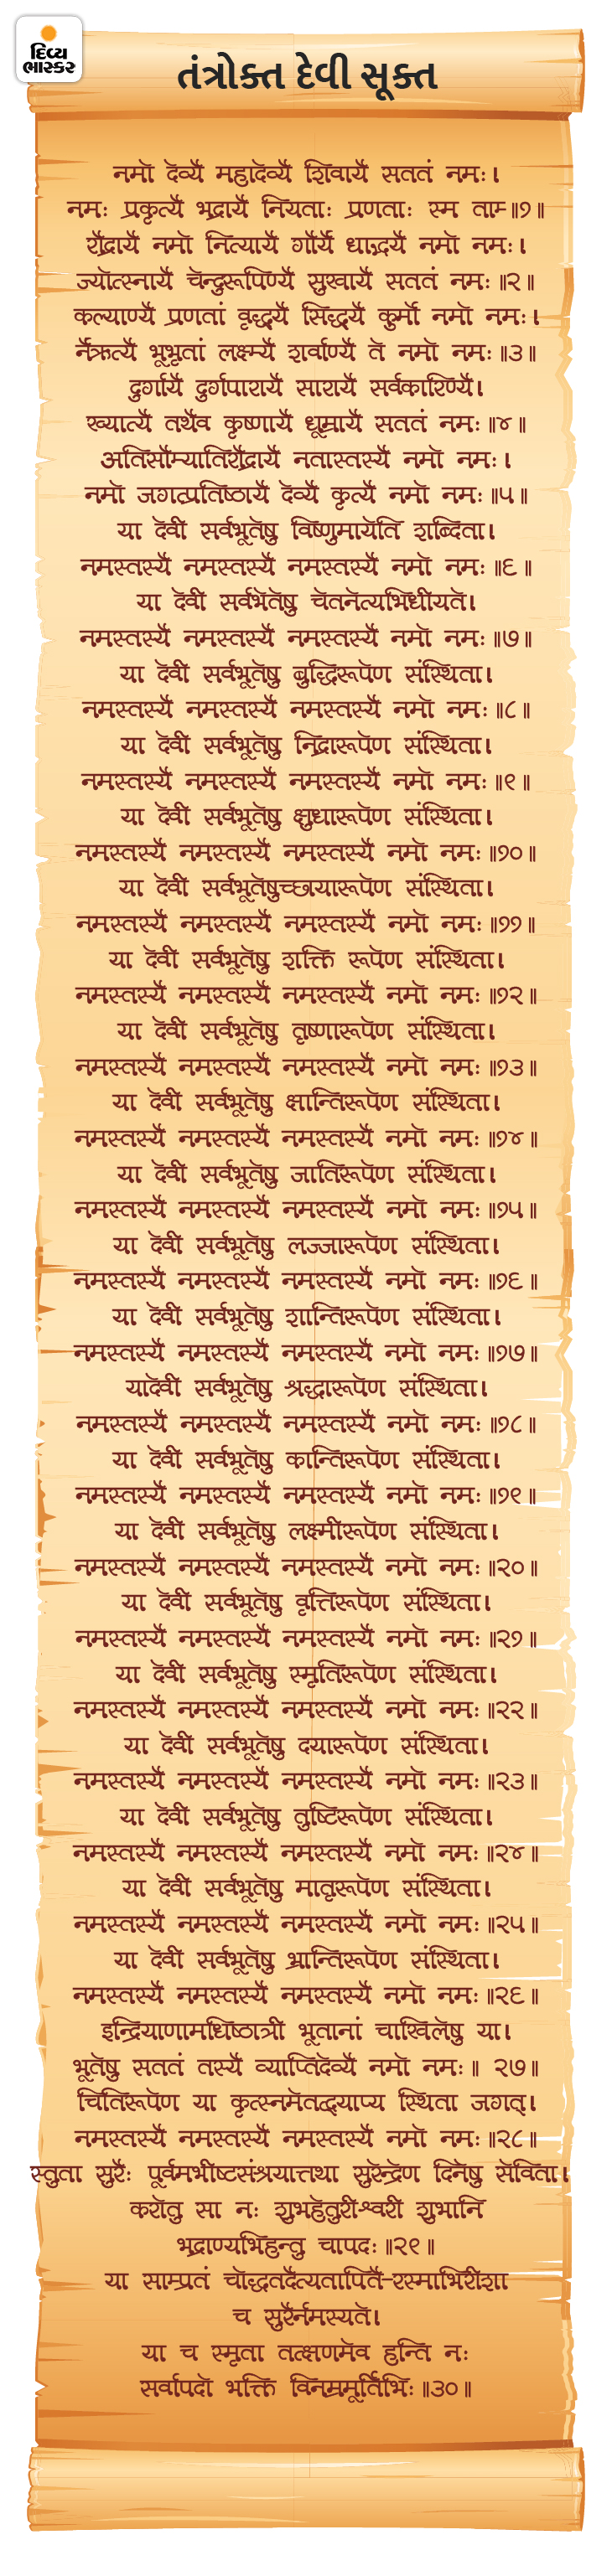 દિવ્ય
ભાસ્કર
તંત્રોક્ત દેવી સૂક્ત
नमो देव्यै महादेव्यै शिवायै सततं नमः।
नमः प्रकृत्यै भद्रायै नियताः प्रणताः स्म ताम्॥१॥
रौद्रायै नमो नित्यायै गौर्यै धाद्भयै नमो नमः।
ज्योत्स्नायै चेन्दुरूपिण्यै सुखायै सततं नमः॥२॥
कल्याण्यै प्रणतां वृद्धयै सिद्धयै कुर्मो नमो नमः।
नैर्ऋत्यै भूभृतां लक्ष्म्यै शर्वाण्यै ते नमो नमः॥३॥
दुर्गायै दुर्गपारायै सारायै सर्वकारिण्यै।
ख्यात्यै तथैव कृष्णायै धूम्रायै सततं नमः॥४॥
अतिसौम्यातिरौद्रायै नतास्तस्यै नमो नमः।
नमो जगत्प्रतिष्ठायै देव्यै कृत्यै नमो नमः॥५॥
या देवी सर्वभूतेषु विष्णुमायेति शब्दिता।
नमस्तस्यै नमस्तस्यै नमस्तस्यै नमो नमः॥६॥
या देवी सर्वभेतेषु चेतनेत्यभिधीयते।
नमस्तस्यै नमस्तस्यै नमस्तस्यै नमो नमः॥७॥
या देवी सर्वभूतेषु बुद्धिरूपेण संस्थिता।
नमस्तस्यै नमस्तस्यै नमस्तस्यै नमो नमः॥८॥
या देवी सर्वभूतेषु निद्रारूपेण संस्थिता।
नमस्तस्यै नमस्तस्यै नमस्तस्यै नमो नमः॥९॥
या देवी सर्वभूतेषु क्षुधारूपेण संस्थिता।
नमस्तस्यै नमस्तस्यै नमस्तस्यै नमो नमः॥१०॥
या देवी सर्वभूतेषुच्छायारूपेण संस्थिता।
नमस्तस्यै नमस्तस्यै नमस्तस्यै नमो नमः॥११॥
या देवी सर्वभूतेषु शक्ति रूपेण संस्थिता।
नमस्तस्यै नमस्तस्यै नमस्तस्यै नमो नमः॥१२॥
या देवी सर्वभूतेषु तृष्णारूपेण संस्थिता।
नमस्तस्यै नमस्तस्यै नमस्तस्यै नमो नमः॥१३॥
या देवी सर्वभूतेषु क्षान्तिरूपेण संस्थिता।
नमस्तस्यै नमस्तस्यै नमस्तस्यै नमो नमः॥१४॥
या देवी सर्वभूतेषु जातिरूपेण संस्थिता।
नमस्तस्यै नमस्तस्यै नमस्तस्यै नमो नमः॥१५॥
या देवी सर्वभूतेषु लज्जारूपेण संस्थिता।
नमस्तस्यै नमस्तस्यै नमस्तस्यै नमो नमः॥१६॥
या देवी सर्वभूतेषु शान्तिरूपेण संस्थिता।
नमस्तस्यै नमस्तस्यै नमस्तस्यै नमो नमः॥१७॥
यादेवी सर्वभूतेषु श्रद्धारूपेण संस्थिता।
नमस्तस्यै नमस्तस्यै नमस्तस्यै नमो नमः॥१८॥
या देवी सर्वभूतेषु कान्तिरूपेण संस्थिता।
नमस्तस्यै नमस्तस्यै नमस्तस्यै नमो नमः॥१९॥
या देवी सर्वभूतेषु लक्ष्मीरूपेण संस्थिता।
नमस्तस्यै नमस्तस्यै नमस्तस्यै नमो नमः॥२०॥
या देवी सर्वभूतेषु वृत्तिरूपेण संस्थिता।
नमस्तस्यै नमस्तस्यै नमस्तस्यै नमो नमः॥२१॥
या देवी सर्वभूतेषु स्मृतिरूपेण संस्थिता।
नमस्तस्यै नमस्तस्यै नमस्तस्यै नमो नमः॥२२॥
या देवी सर्वभूतेषु दयारूपेण संस्थिता।
नमस्तस्यै नमस्तस्यै नमस्तस्यै नमो नमः॥२३॥
या देवी सर्वभूतेषु तुष्टिरूपेण संस्थिता।
नमस्तस्यै नमस्तस्यै नमस्तस्यै नमो नमः॥२४॥
या देवी सर्वभूतेषु मातृरूपेण संस्थिता।
नमस्तस्यै नमस्तस्यै नमस्तस्यै नमो नमः॥२५॥
या देवी सर्वभूतेषु भ्रान्तिरूपेण संस्थिता।
नमस्तस्यै नमस्तस्यै नमस्तस्यै नमो नमः॥२६॥
इन्द्रियाणामधिष्ठात्री भूतानां चाखिलेषु या।
भूतेषु सततं तस्यै व्याप्तिदेव्यै नमो नमः॥ २७॥
चितिरूपेण या कृत्स्नमेतद्व्याप्य स्थिता जगत्।
नमस्तस्यै नमस्तस्यै नमस्तस्यै नमो नमः॥२८॥
स्तुता सुरैः पूर्वमभीष्टसंश्रयात्तथा सुरेन्द्रेण दिनेषु सेविता।
करोतु सा नः शुभहेतुरीश्वरी शुभानि
भद्राण्यभिहन्तु चापदः॥२९॥
या साम्प्रतं चोद्धतदैत्यतापितै-रस्माभिरीशा
च सुरैर्नमस्यते।
या च स्मृता तत्क्षणमेव हन्ति नः
सर्वापदो भक्ति विनम्रमूर्तिभिः॥३०॥